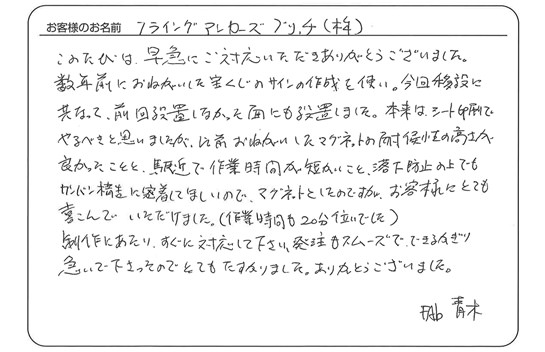 お客様のお名前 フライングアンカーズブリッヂ(株)
このたびは、早急にご対応いただきありがとうございました。
数年前におねがいした宝くじのサインの作成を使い。今回移設に
共なって、前回設置しなかった面にも設置しました。本来は、シート印刷で
やるべきと思いましたが、以前おねがいしたマグネットの耐侯性の高さが
良かったことと、駅近で作業時間が短かいこと、落下防止の上でも
カンバン構造に密着してほしいので、マグネットとしたのですが、お客様にとても
喜こんでいただけました。(作業時間も20分位いでした)
制作にあたり、すぐに対応して下さい、発注もスムーズで、できるかぎり
急いで下さったのでとてもたすかりました。ありがとうございました。
青木